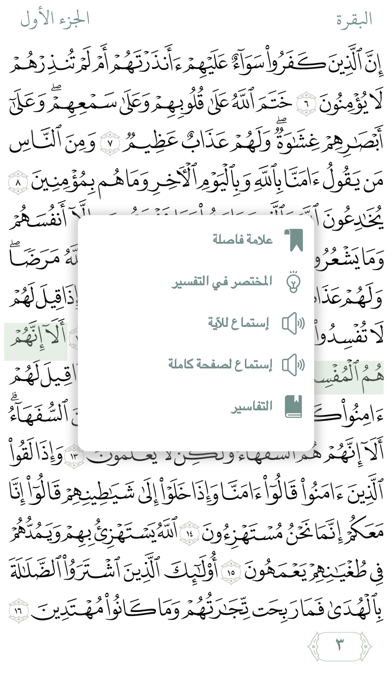 البقرة
الجزء الأول
إِنَّ ٱلَّذِينَ كَفَرُواْ سَوَآءٌ عَلَيۡهِمۡ ءَأَنذَرۡتَهُمۡ أَمۡ لَمۡ تُنذِرۡهُمۡ
لَا يُؤۡمِنُونَ ٦ خَتَمَ ٱللَّهُ عَلَىٰ قُلُوبِهِمۡ وَعَلَىٰ سَمۡعِهِمۡۖ وَعَلَىٰٓ
أَبۡصَٰرِهِمۡ غِشَٰوَةٞۖ وَلَهُمۡ عَذَابٌ عَظِيمٞ ٧ وَمِنَ ٱلنَّاسِ
مَن يَقُولُ ءَامَنَّا بِٱللَّهِ وَبِٱلۡيَوۡمِ ٱلۡأٓخِرِ وَمَا هُم بِمُؤۡمِنِينَ ٨
يُخَٰدِعُونَ أَنفُسَهُمۡ
وَمَا يَشۡعُرُونَ مَرَضٗاۖ
وَلَهُمۡ عَذَابٌ قِيلَ لَهُمۡ
لَا تُفۡسِدُواْ أَلَآ إِنَّهُمۡ
هُمُ ٱلۡمُفۡسِدُونَ قِيلَ لَهُمۡ
ءَامِنُواْ ٱلسُّفَهَآءُۗ
أَلَآ إِنَّهُمۡ هُمُ ٱلسُّفَهَآءُ وَلَٰكِن لَّا يَعۡلَمُونَ ١٣ وَإِذَا لَقُواْ
ٱلَّذِينَ ءَامَنُواْ قَالُوٓاْ ءَامَنَّا وَإِذَا خَلَوۡاْ إِلَىٰ شَيَٰطِينِهِمۡ قَالُوٓاْ إِنَّا
مَعَكُمۡ إِنَّمَا نَحۡنُ مُسۡتَهۡزِءُونَ ١٤ ٱللَّهُ يَسۡتَهۡزِئُ بِهِمۡ وَيَمُدُّهُمۡ
فِي طُغۡيَٰنِهِمۡ يَعۡمَهُونَ ١٥ أُوْلَٰٓئِكَ ٱلَّذِينَ ٱشۡتَرَوُاْ ٱلضَّلَٰلَةَ
بِٱلۡهُدَىٰ فَمَا رَبِحَت تِّجَٰرَتُهُمۡ وَمَا كَانُواْ مُهۡتَدِينَ ١٦
٣
علامة فاصلة
المختصر في التفسير
إستماع للآية
إستماع لصفحة كاملة
التفاسير